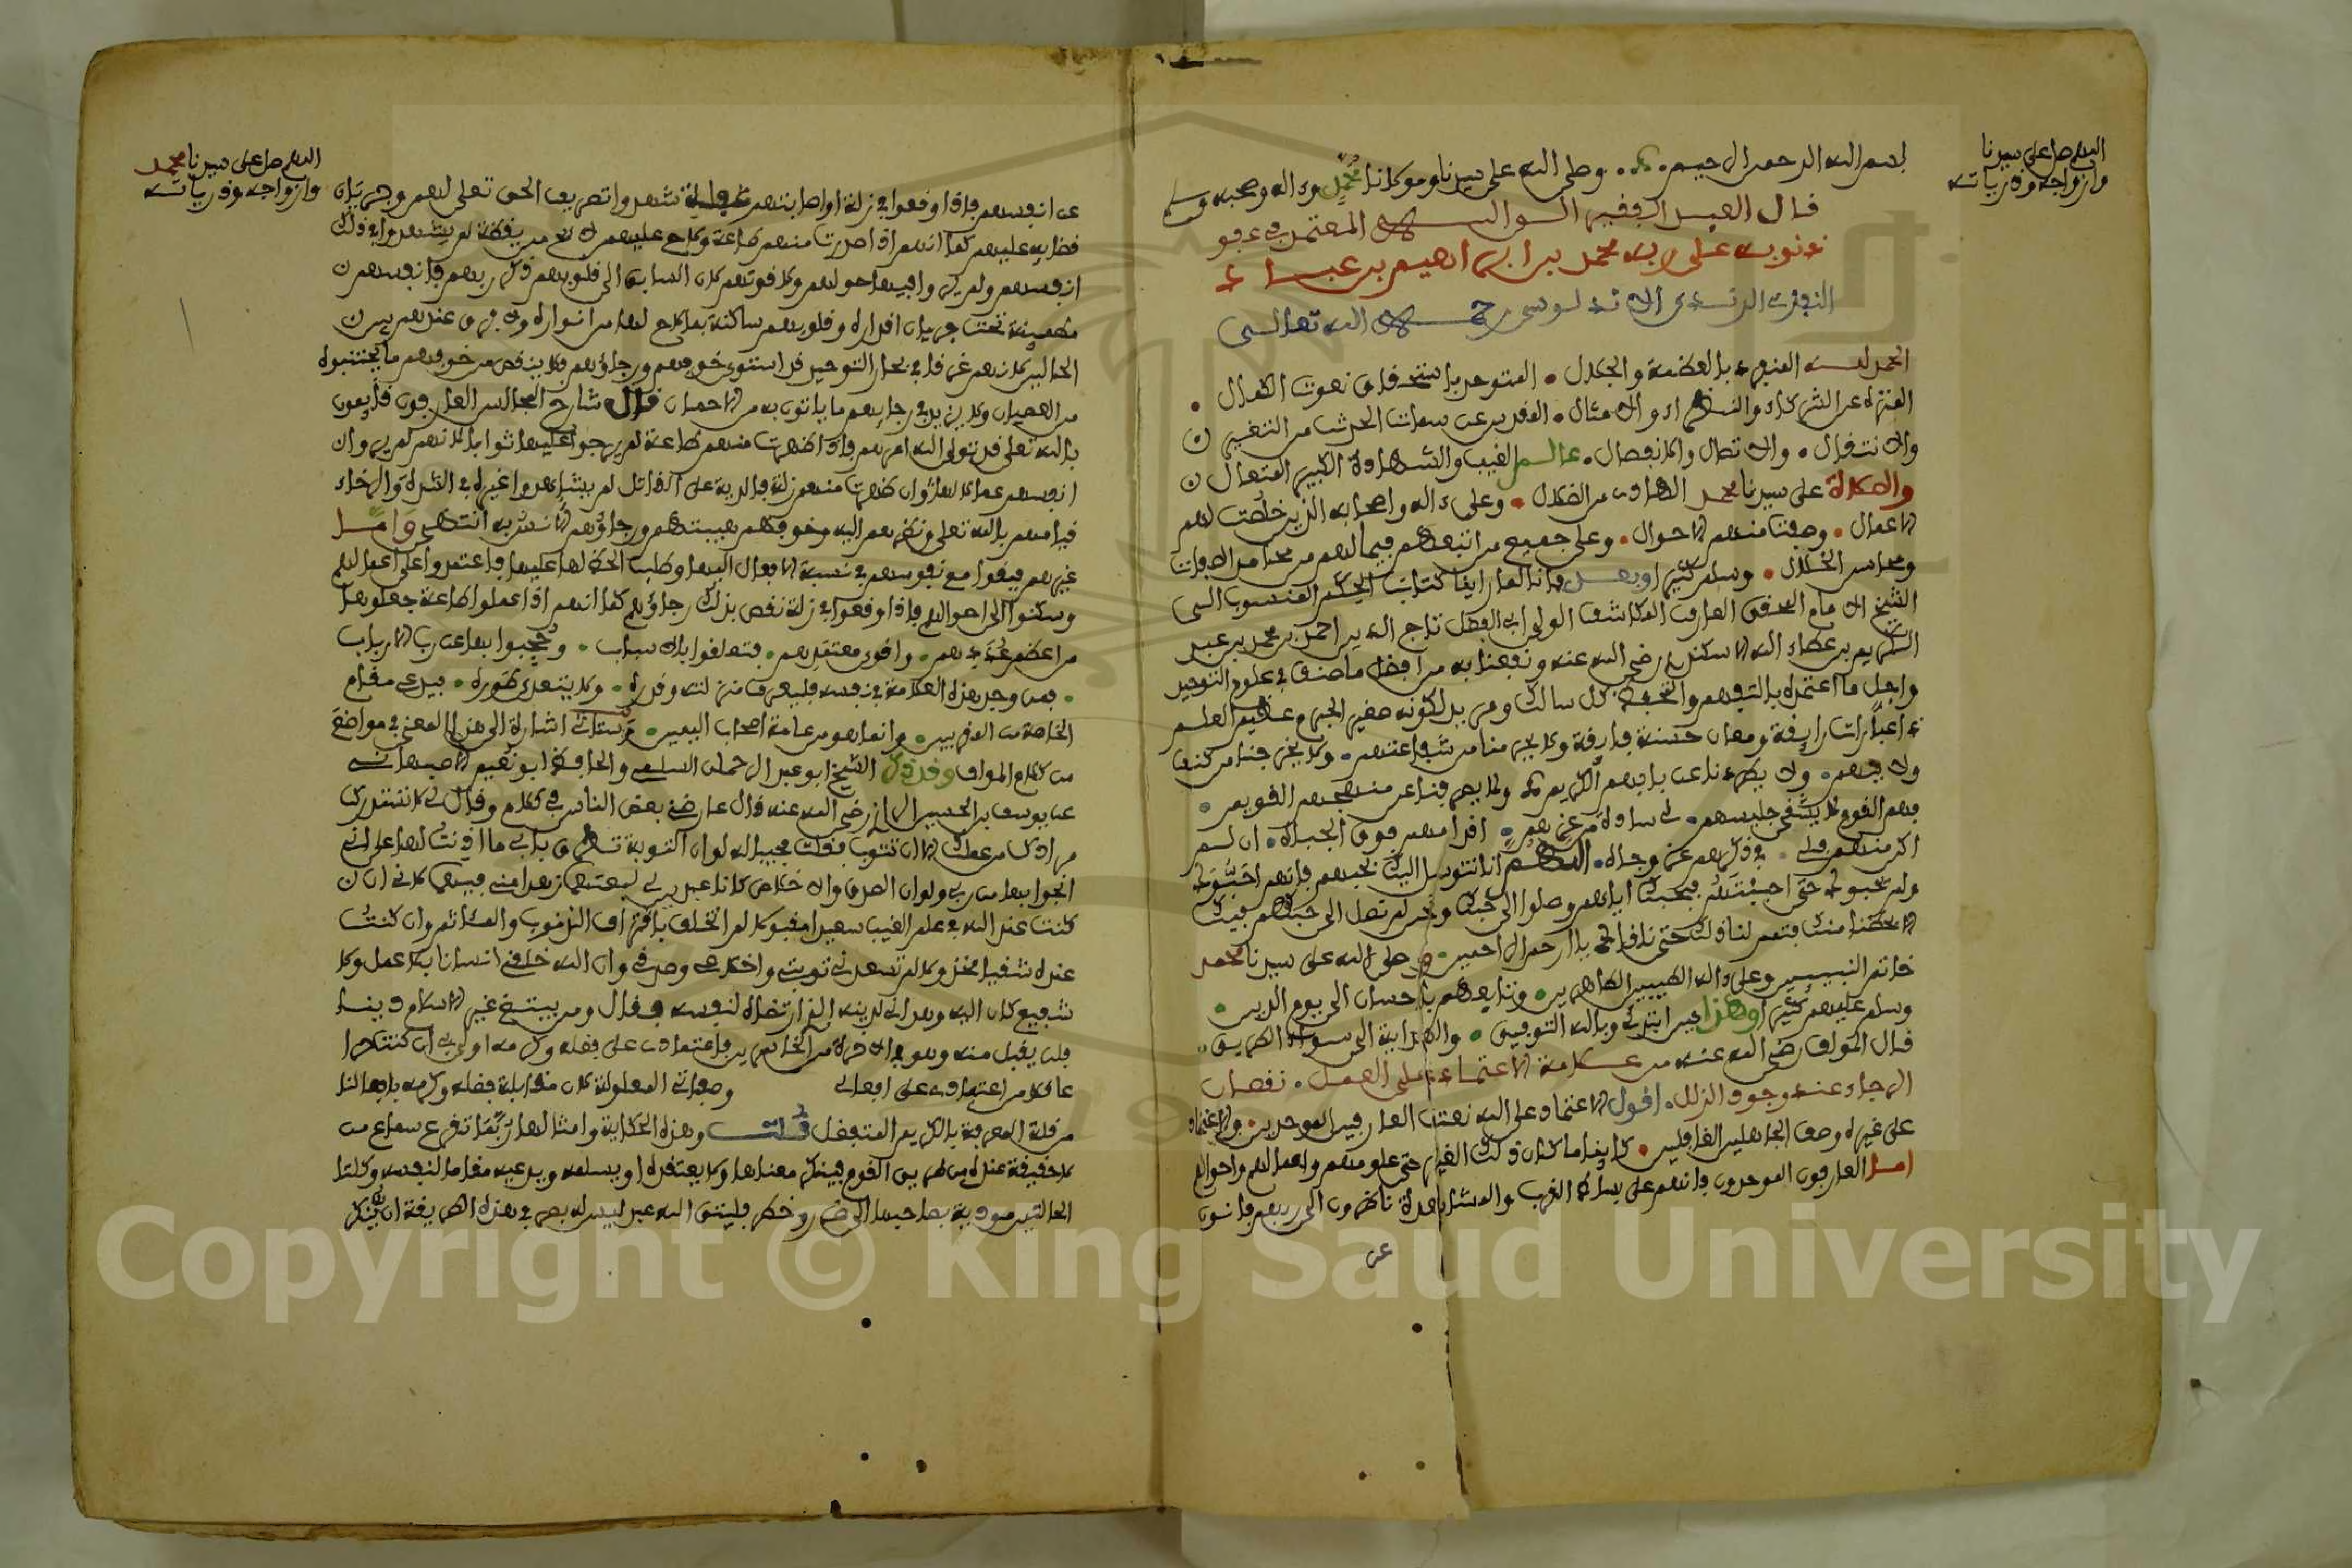 اللهم صل على سيدنا
وازواجه وذرياته
بسم الله الرحمن الرحيم وصلى الله على سيدنا ومولانا محمد وءاله وصحبه وسلم
قال العبد الفقير الى الله المعتمد في عفو
ذنوبه على ربه محمد بن ابراهيم بن عباد
النفزي الرندي الاندلوسي رحمه الله تعالى
الحمد لله المنفرد بالعظمة والجلال المتوحد باستحقاق نعوت الكمال
المنزه عن الشركاء والنظراء والامثال المقدس عن سمات الحدث من التغيير
والانتقال والاتصال والانفصال عالم الغيب والشهادة الكبير المتعال
والصلاة على سيدنا محمد الهادي من الضلال وعلى ءاله واصحابه الذين خلصت لهم
الاعمال وصفت منهم الاحوال وعلى جميع من اتبعهم فيما لهم من محامد الصفات
ومحاسن الخلال وسلم كثيرا وبعد فانا لما راينا كتاب الحكم المنسوب الى
الشيخ الامام المحقق العارف المكاشف الولي ابي الفضل تاج الدين احمد بن محمد بن عبد
الكريم بن عطاء الله الاسكندري رضي الله عنه ونفعنا به من افضل ما صنف في علوم التوحيد
واجل ما اعتمده بالتفهم والتحفظ كل سالك ومريد لكونه صغير الجرم عظيم العلم
ذا عبارات رايقة ومعان حسنة فايقة
هم القوم لا يشقى جليسهم لي سادة من عزهم اقدامهم فوق الجباه ان لم
اكن منهم فلي في ذكرهم عز وجاه اللهم انا نتوسل اليك بحبهم فانهم احبوك
ولم يحبوك حتى احببتهم فبحبك اياهم وصلوا الى حبك ونحن لم نصل الى حبهم فيك
الا بحظنا منك فتمم لنا ذلك حتى نلقاك يا ارحم الراحمين وصلى الله على سيدنا محمد
خاتم النبيين وعلى ءاله الطيبين الطاهرين وتابعيهم باحسان الى يوم الدين
وسلم عليهم كثيرا وهذا حين ابتدئ وبالله التوفيق والهداية الى سواء الطريق
قال المؤلف رضي الله عنه من علامة الاعتماد على العمل نقصان
الرجاء عند وجود الزلل اقول الاعتماد على الله نعت العارفين الموحدين والاعتماد
على غيره وصف الجاهلين الغافلين كاينا ما كان ذلك الغير حتى علومهم واعمالهم واحوالهم
اما العارفون الموحدون فانهم على بساط القرب والمشاهدة ناظرون الى ربهم فانون
عن
اللهم صل على سيدنا محمد
وازواجه وذرياته
عن انفسهم فاذا وقعوا في زلة او اصابتهم غفلة شهدوا تصريف الحق تعلى لهم وجريان
قضايه عليهم كما انهم اذا صدرت منهم طاعة ولاح عليهم لايح من يقظة لم يشهدوا في ذلك
انفسهم ولم يروا فيها حولهم ولا قوتهم لان السابق الى قلوبهم ذكر ربهم فانفسهم
مطمينة تحت جريان اقداره وقلوبهم ساكنة بما لاح لها من انواره ولا فرق عندهم بين
الحالين لانهم غرقا في بحار التوحيد قد استوى خوفهم ورجاؤهم فلا ينقص من خوفهم ما يجتنبوه
من العصيان ولا يزيد في رجايهم ما ياتون به من الاحسان قال شارح المجالس العارفون قايمون
بالله تعلى قد تولى الله امرهم فاذا ظهرت منهم طاعة لم يرجوا عليها ثوابا لانهم لم يروا
انفسهم عمالا لها وان ظهرت منهم زلة فالدية على القاتل لم يشاهدوا غيره في الشدة والرخاء
قيامهم بالله تعلى ونظرهم اليه وخوفهم هيبته ورجاؤهم الانس به انتهى واما
غيرهم فبقوا مع نفوسهم في نسبة الافعال اليها وطلب الحظ لها عليها فاعتمدوا على اعمالهم
وسكنوا الى احوالهم فاذا وقعوا في زلة نقص بذلك رجاؤهم كما انهم اذا عملوا طاعة جعلوها
من اعظم عددهم واقوى معتمدهم فتعلقوا بالاسباب وحجبوا بها عن رب الارباب
فمن وجد هذه العلامة في نفسه فليعرف منزلته وقدره ولا يتعدى طوره فيدعي مقام
الخاصة من المقربين وانما هو من عامة اصحاب اليمين وستاتي اشارة الى هذا المعنى في مواضع
من كلام المؤلف وقد ذكر الشيخ ابو عبد الرحمان السلمي والحافظ ابو نعيم الاصبهاني
عن يوسف بن الحسين الرازي رضي الله عنه قال عارضني بعض الناس في كلام وقال لي لا تستدرك
مرادك من عملك الا ان تتوب فقلت مجيبا له لو ان التوبة تطرق بابي ما اذنت لها على اني
انجوا بها من ربي ولو ان الصدق والاخلاص كانا عبدين لي لبعتهما زهدا مني فيهما لاني ان
كنت عند الله في علم الغيب سعيدا مقبولا لم اتخلف باقتراف الذنوب والمئاثم وان كنت
عنده شقيا مخذولا لم تسعدني توبتي واخلاصي وصدقي وان الله خلقني انسانا بلا عمل ولا
شفيع كان لي اليه وهداني لدينه الذي ارتضاه لنفسه فقال ومن يبتغ غير الاسلام دينا
فلن يقبل منه وهو في الاخرة من الخاسرين فاعتمادي على فضله وكرمه اولى بي ان كنت حرا
عاقلا من اعتمادي على افعالي وصفاتي المعلولة لان مقابلة فضله وكرمه بافعالنا
من قلة المعرفة بالكريم المتفضل قلت وهذه الحكاية وامثالها ربما تقرع سماع من
لا حقيقة عنده من طريق القوم فينكر معناها ولا يعتقده او يسلمه ويدعيه مقاما لنفسه وكلتا
الحالتين مودية بصاحبها الى ضرر وخطر فليتق الله عبد ليس له بصر في هذه الطريقة ان ينكر